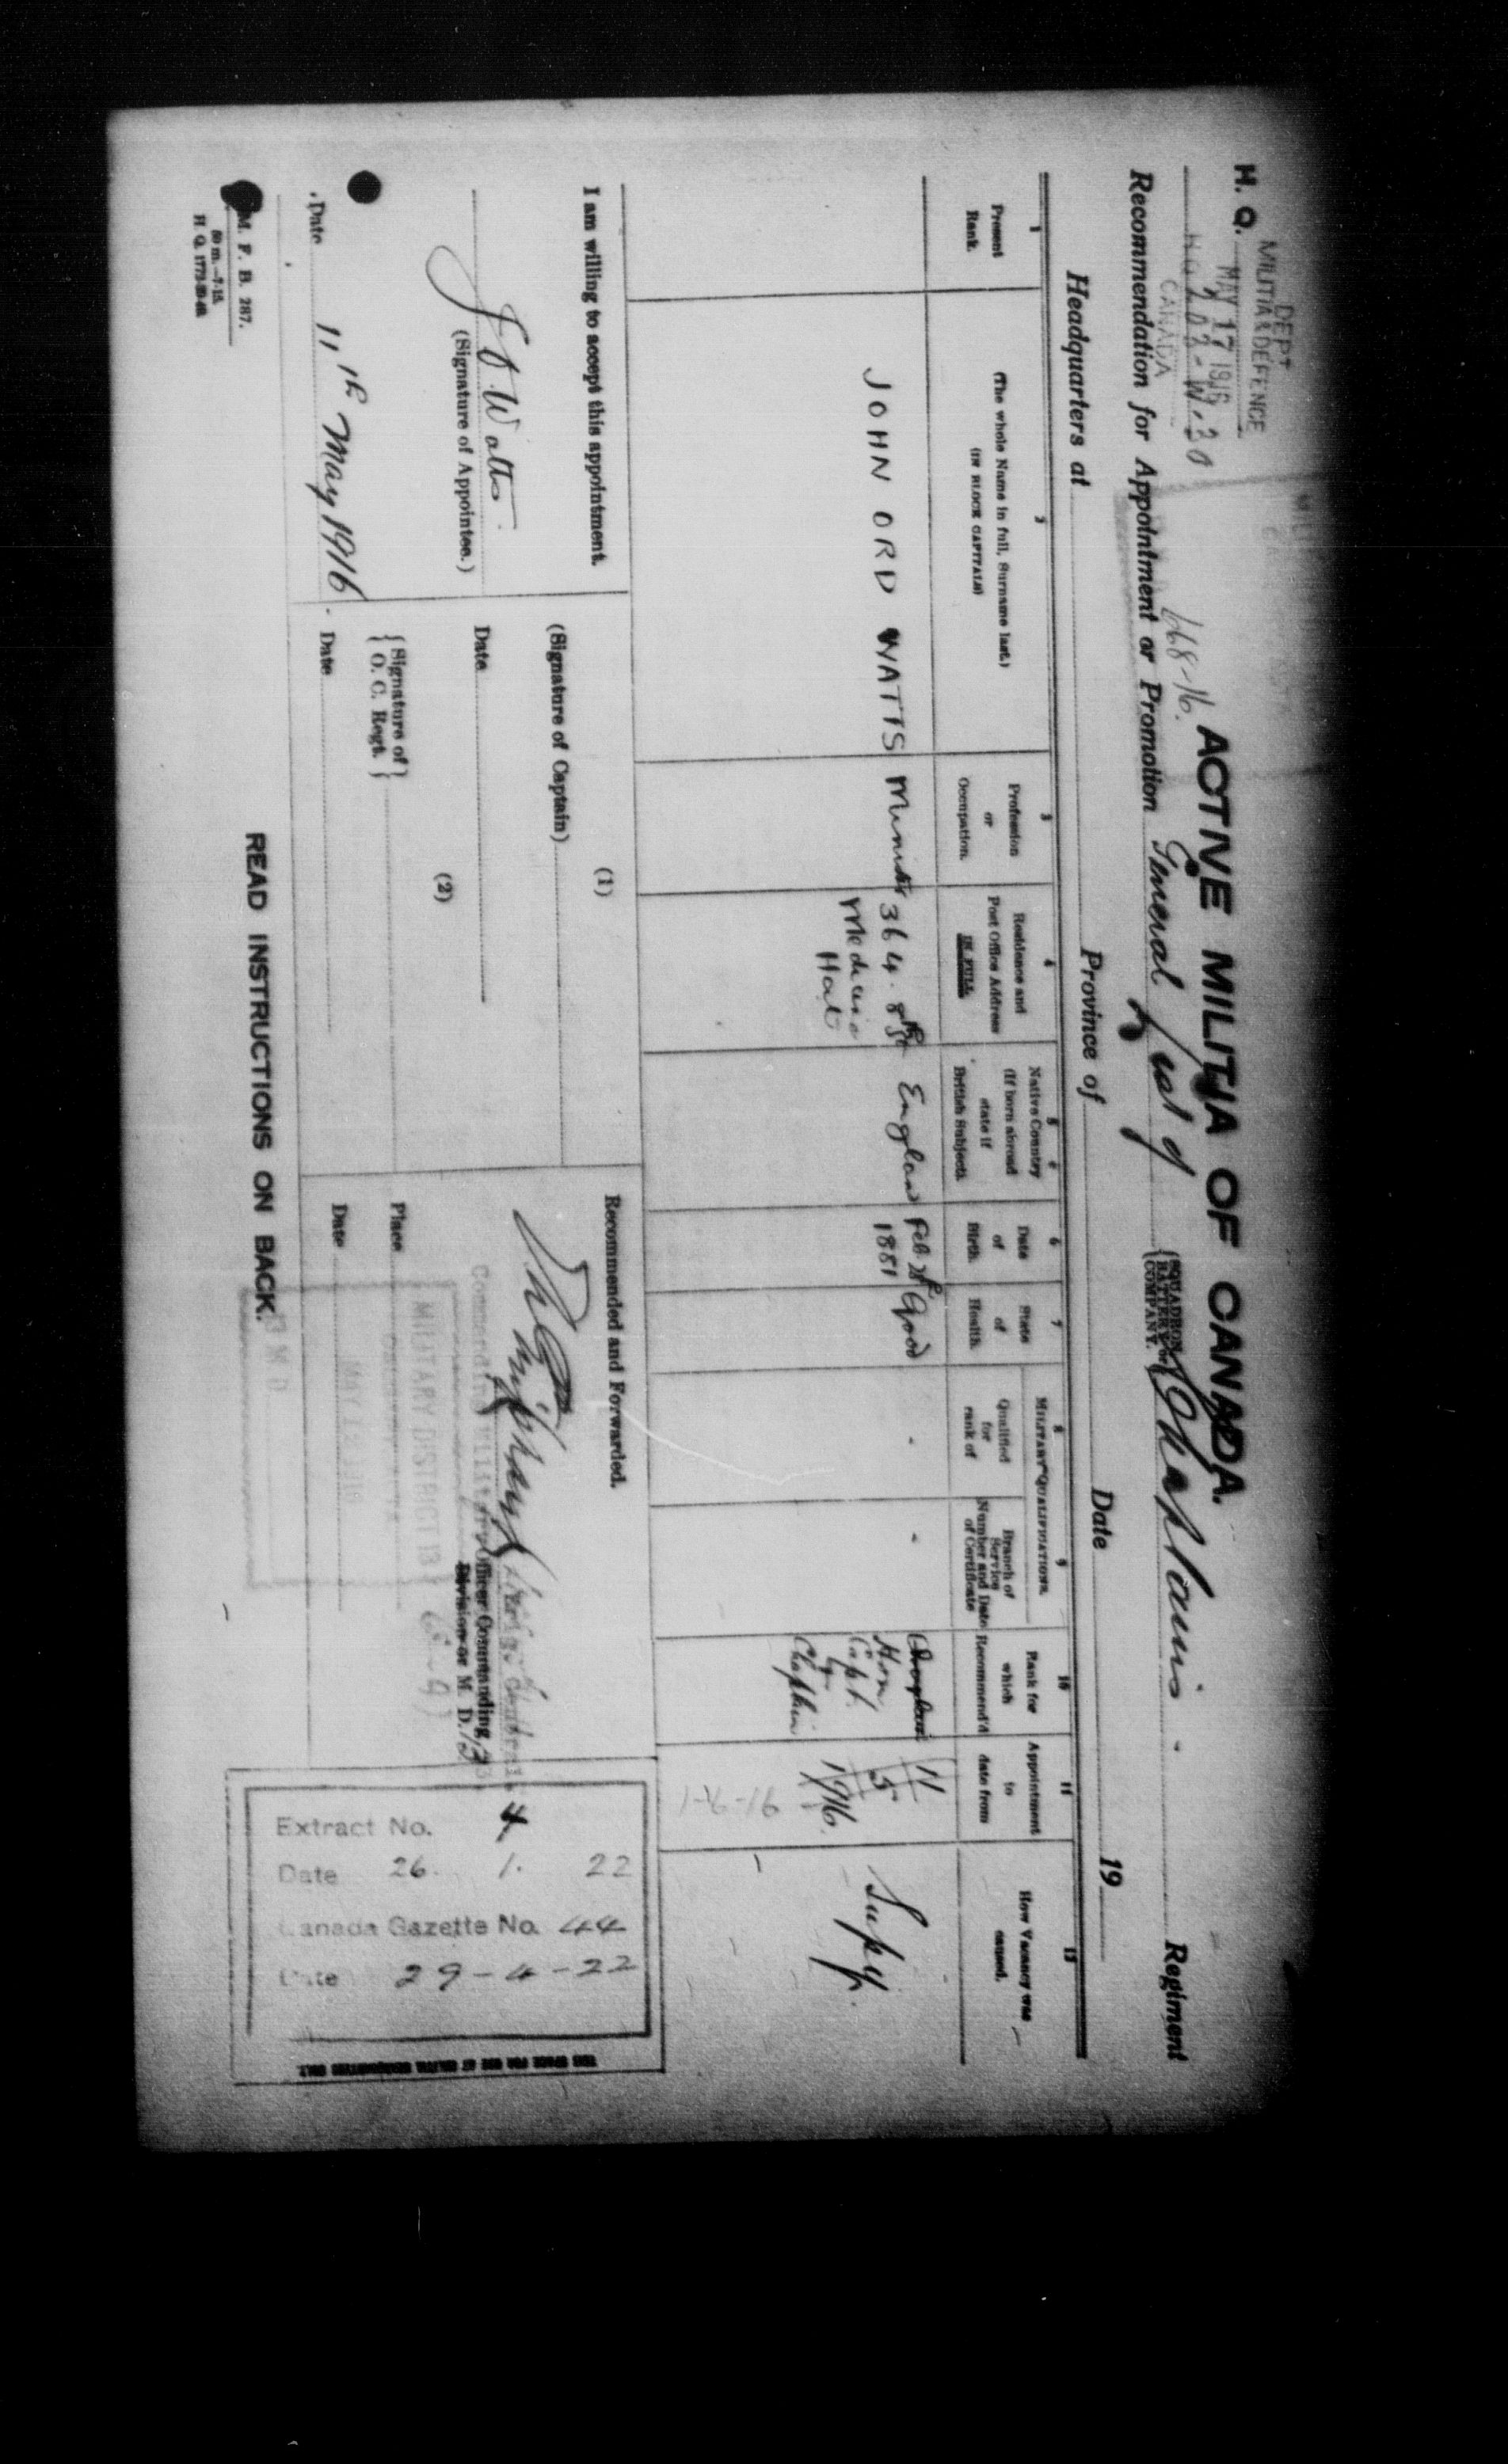 DEPT
MILITIA & DEFENCE
MAY 17 1916
CANADA
H. Q.
H Q 202-W.30
168-16.
ACTIVE MILITIA OF CANADA.
Recommendation for Appointment or Promotion General List of {SQUADRON, BATTERY or COMPANY.} Chaplains - Regiment
Headquarters at Province of Date 19
1
Present Rank.
2
(The whole Name in full, Surname last.)
(IN BLOCK CAPITALS)
3
Profession or Occupation.
4
Residence and Post Office Address
IN FULL
5
Native Country
(If born abroad state if British Subject).
6
Date of Birth.
7
State of Health.
MILITARY QUALIFICATIONS.
8
Qualified for rank of
9
Branch of Service Number and Date of Certificate
10
Rank for which Recommend'd
11
Appointment to date from
12
How Vacancy was caused.
JOHN ORD WATTS
Minister
364. 8th St
Medicine
Hat
England
Feb. 28th
1881
Good
Chaplain
Hon
Capt.
&
Chaplain
11
5
1916.
1-6-16
Supy.
I am willing to accept this appointment.
J O Watts
(Signature of Appointee.)
Date 11th May 1916.
(1)
(Signature of Captain)
Date
(2)
{Signature of O. C. Regt.}
Date
Recommended and Forwarded.
Officer Commanding
Division or M. D. 13
MILITARY DISTRICT 13
Place
Date
Extract No. 4
Date 26. 1. 22
Canada Gazette No. 44
Date 29-4-22
THIS SPACE FOR USE AT MILITIA HEADQUARTERS ONLY.
M. F. B. 287.
50 m.-7-15.
H. Q. 1772-39-82.
READ INSTRUCTIONS ON BACK.